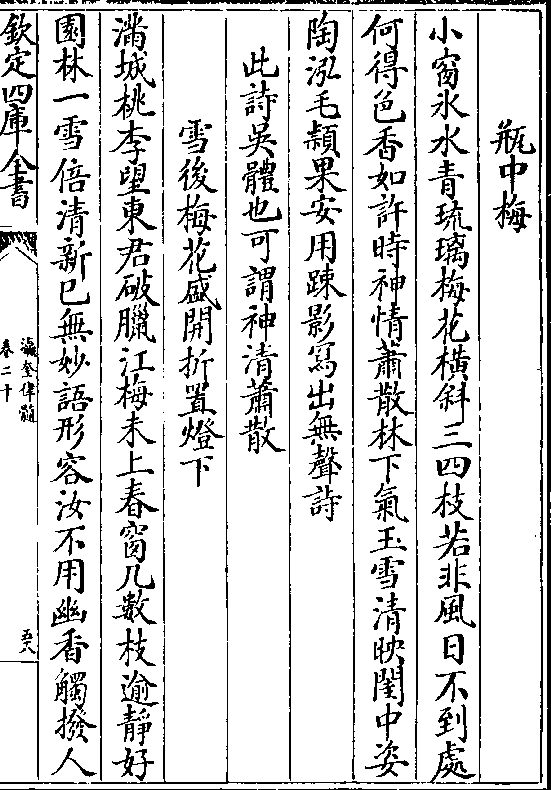 瓶中梅
小窗氷水青琉璃梅花横斜三四枝若非風日不到處
何得色香如許時神情蕭散林下氣玉雪清映閨中姿
陶泓毛穎果安用踈影寫出無聲詩
此詩吳體也可謂神清蕭散
雪後梅花盛開折置燈下
滿城桃李望東君破臘江梅未上春窗几數枝逾靜好
園林一雪倍清新已無妙語形容汝不用幽香觸撥人
欽定四庫全書
瀛奎律髓
卷二十
五八